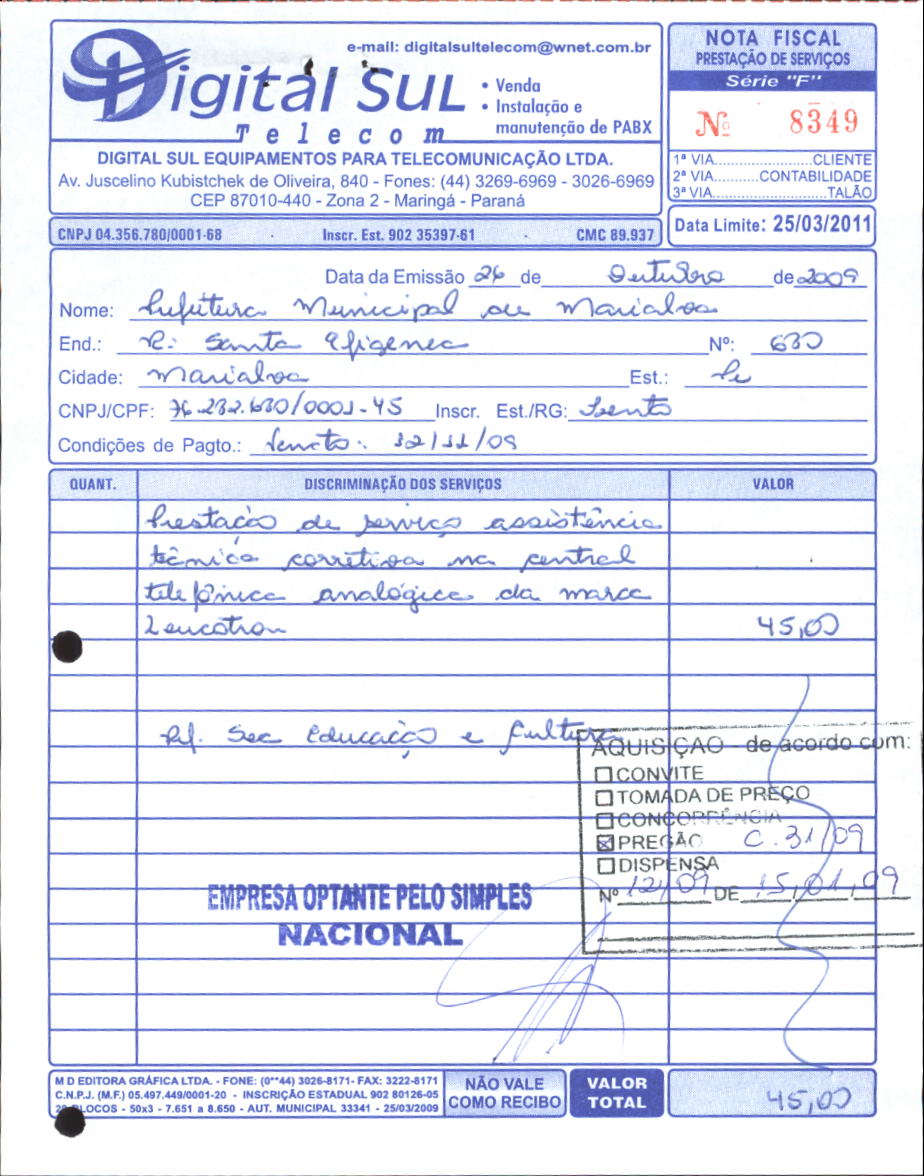 e-mail: digitalsultelecom@wnet.com.br
Digital Sul
Telecom
• Venda
• Instalação e
manutenção de PABX
DIGITAL SUL EQUIPAMENTOS PARA TELECOMUNICAÇÃO LTDA.
Av. Juscelino Kubistchek de Oliveira, 840 - Fones: (44) 3269-6969 - 3026-6969
CEP 87010-440 - Zona 2 - Maringá - Paraná
NOTA FISCAL
PRESTAÇÃO DE SERVIÇOS
Série "F"
Nº 8349
1ª VIA........................CLIENTE
2ª VIA...........CONTABILIDADE
3ª VIA...........................TALÃO
CNPJ 04.356.780/0001-68 - Inscr. Est. 902 35397-61 - CMC 89.937
Data Limite: 25/03/2011
Data da Emissão 26 de Outubro de 2009
Nome: Prefeitura Municipal de Marialva
End.: R: Santa Efigenea Nº: 680
Cidade: Marialva Est.: Pr
CNPJ/CPF: 76.282.680/0001-45 Inscr. Est./RG: Isento
Condições de Pagto.: Vencto: 12/11/09
QUANT. DISCRIMINAÇÃO DOS SERVIÇOS VALOR
Prestação de serviço assistência
técnica corretiva na central
telefônica analógica da marca
Leucotron 45,00
Ref. Sec Educação e Cultura
AQUISIÇÃO - de acordo com:
CONVITE
TOMADA DE PREÇO
CONCORRÊNCIA
PREGÃO C. 31/09
DISPENSA
Nº 12/09 DE 15,01,09
EMPRESA OPTANTE PELO SIMPLES
NACIONAL
M D EDITORA GRÁFICA LTDA. - FONE: (0**44) 3026-8171- FAX: 3222-8171
C.N.P.J. (M.F.) 05.497.449/0001-20 - INSCRIÇÃO ESTADUAL 902 80126-05
20 BLOCOS - 50x3 - 7.651 a 8.650 - AUT. MUNICIPAL 33341 - 25/03/2009
NÃO VALE
COMO RECIBO
VALOR
TOTAL
45,00